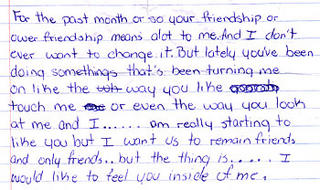 For the past month or so your friendship or
ower friendship means alot to me. And I don't
ever want to change it. But lately you've been
doing somethings that's been turning me
on like the way you like
touch me or even the way you look
at me and I...... am really starting to
like you but I want us to remain friends
and only friends.. but the thing is..... I
would like to feel you inside of me.